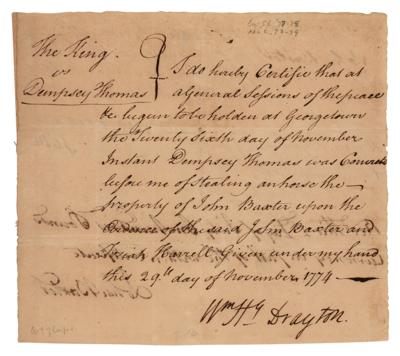 The King
vs
Dempsey Thomas
I do hereby Certifie that at
a General Sessions of the peace
be begun to be holden at Georgetown
the Twenty Sixth day of November
Instant Dempsey Thomas was Convicted
before me of Stealing an horse the
property of John Baxter upon the
Evidence of the said John Baxter and
Harrell Given under my hand
this 29th. day of November 1774
Wm Hy Drayton.